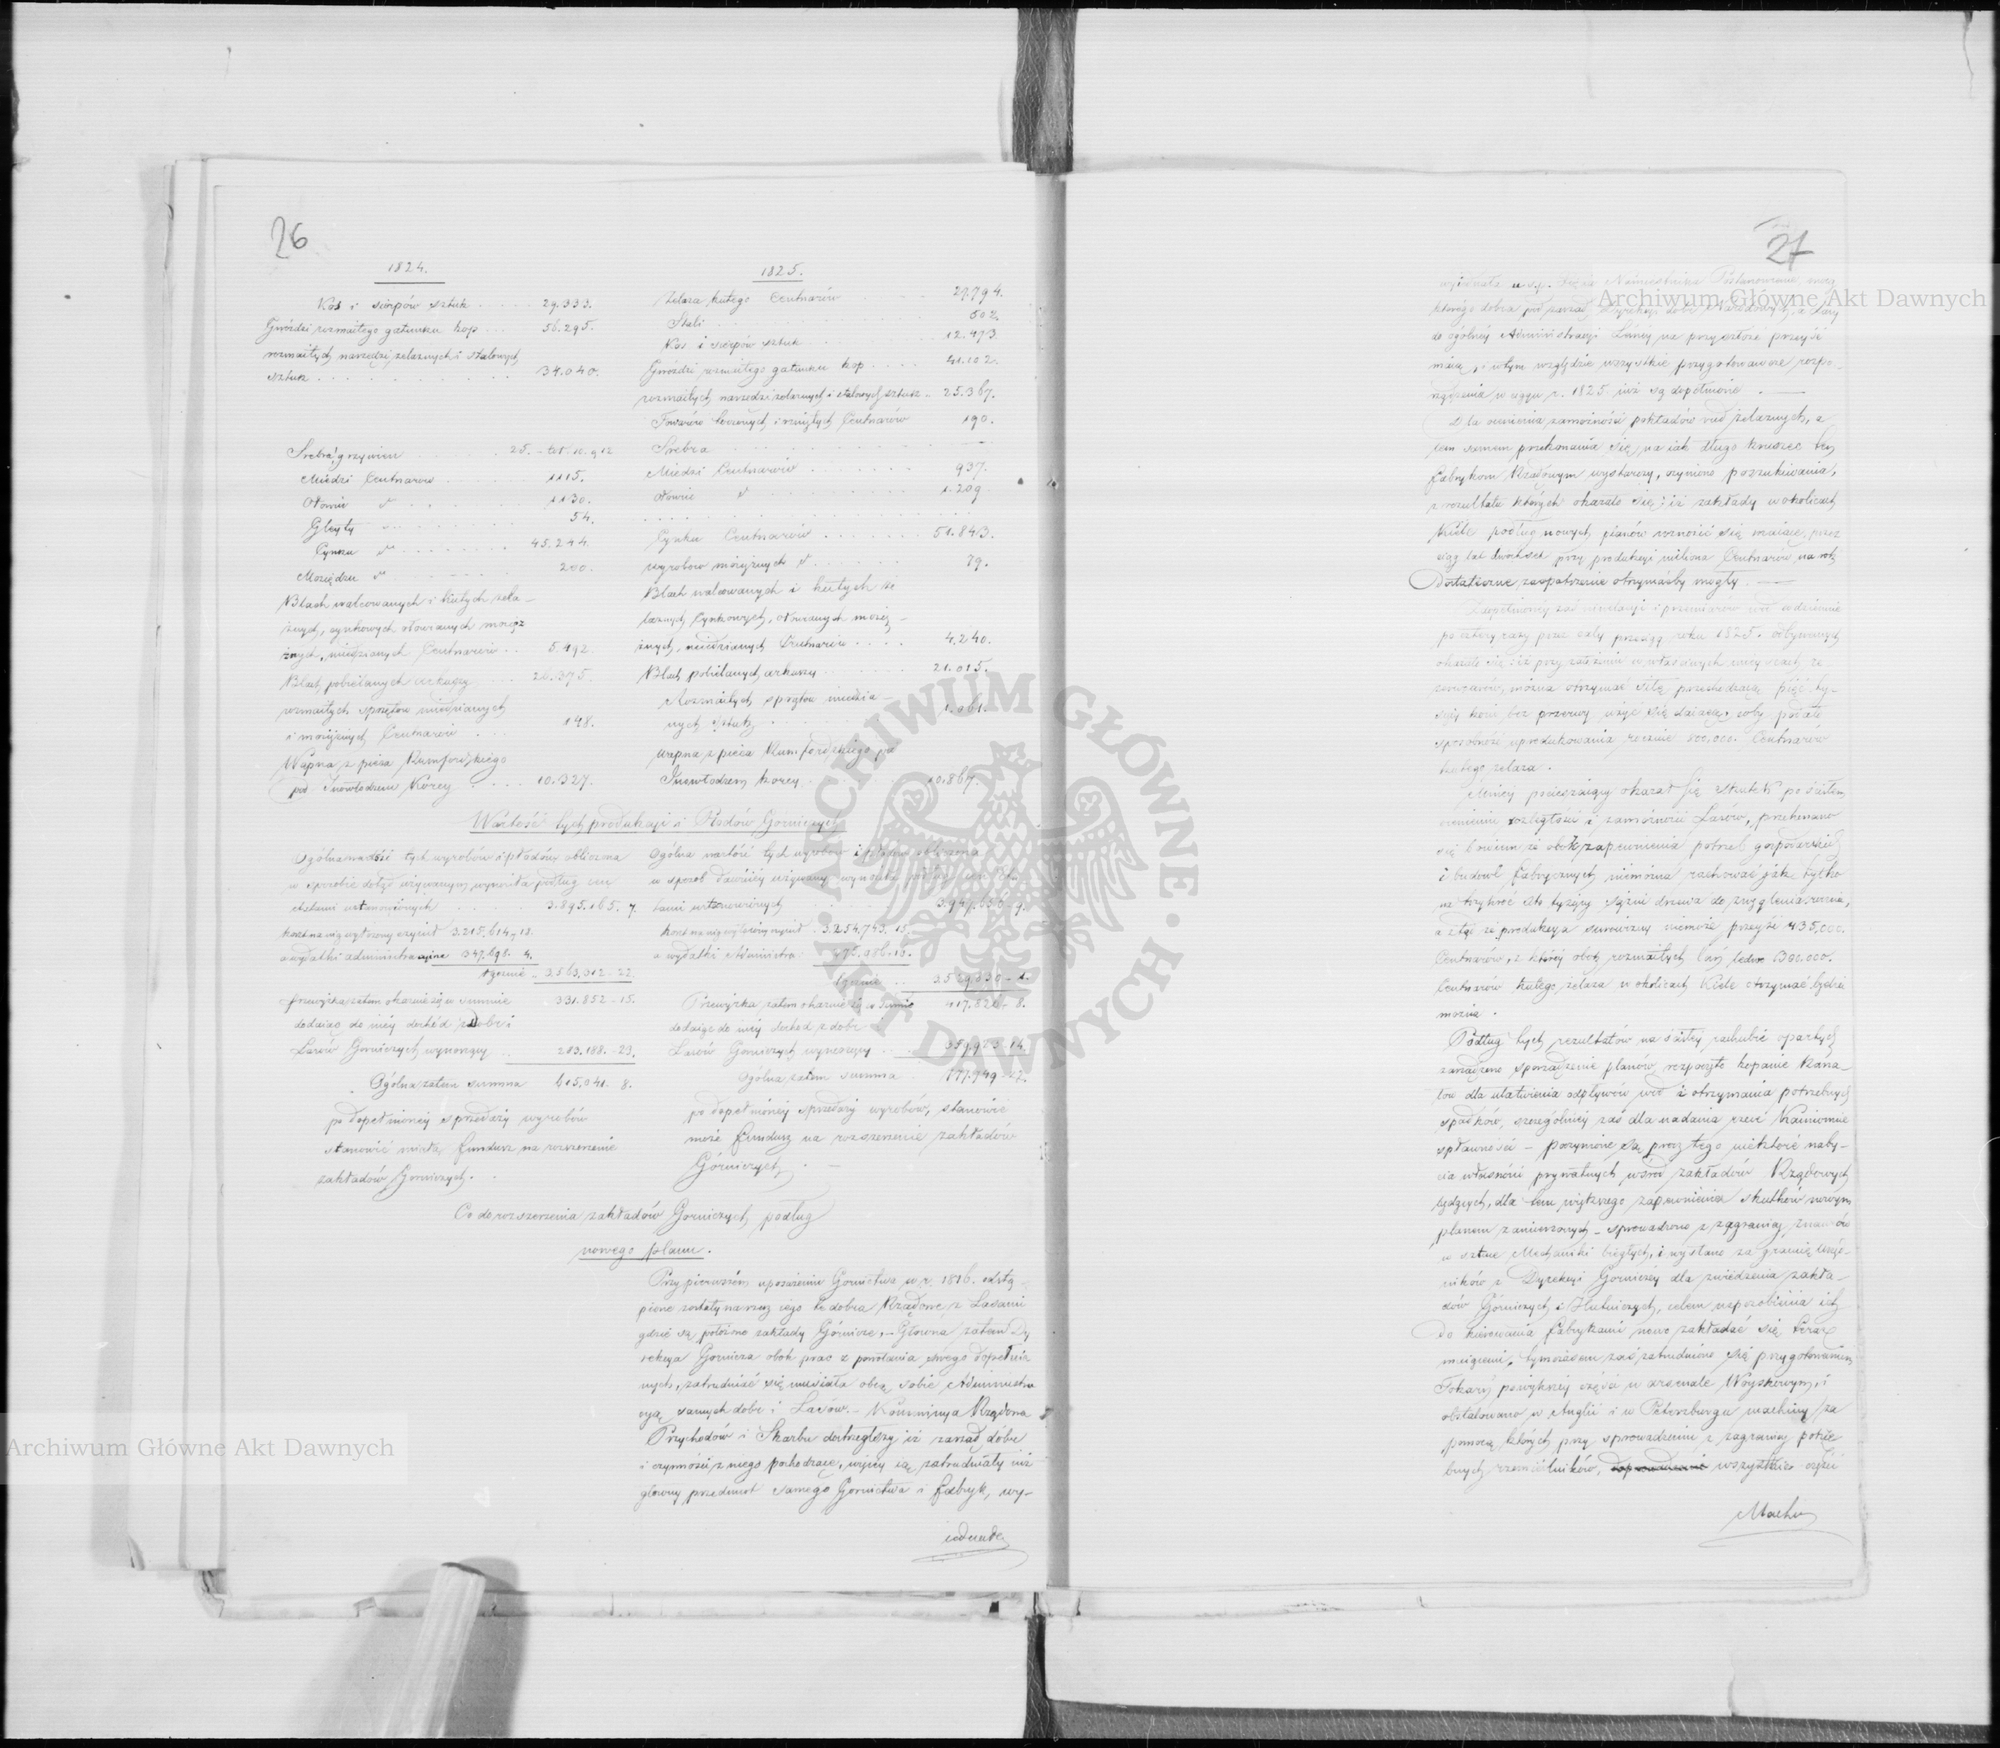 26
1824.
Kos i sierpów sztuk 29.333.
Gwoździ rozmaitego gatunku kop 56.295.
rozmaitych narzędzi żelaznych i stalowych
sztuk 34.040.
Srebra grzywien 25.
Miedzi Centnarów 1115.
Ołowiu d° 1130.
Glejty 54.
Cynku d° 45.244.
Mosiądzu d° 200.
Blach walcowanych i kutych żela-
znych, cynkowych ołowianych mosię
żnych, miedzianych Centnarów 5.492.
Blach pobielanych arkuszy 26.375.
rozmaitych sprzętów miedzianych
i mosiężnych Centnarów 148.
Wapna z pieca Rumfordzkiego
pod Inowłodzem Korcy 10.327.
1825.
Żelaza kutego Centnarów 29.794.
Stali 502.
Kos i sierpów sztuk 12.473.
Gwoździ rozmaitego gatunku kop 41.102.
rozmaitych narzędzi żelaznych i stalowych sztuk 25.367.
Towarów toczonych i rzniętych Centnarów 190.
Srebra —
Miedzi Centnarów 937.
Ołowiu d° 1.209.
Cynku Centnarów 51.843.
wyrobów mosiężnych d° 79.
Blach walcowanych i kutych że
laznych Cynkowych, ołowianych mosię-
żnych, miedzianych Centnarów 4.240.
Blach pobielanych arkuszy 21.015.
Rozmaitych sprzętów miedzia-
nych Sztuk 1.061.
Wapna z pieca Rumfordzkiego pod
Inowłodzem korcy 10.867.
Wartość tych produkcyi i Płodów Górniczych
Ogólna wartość tych wyrobów i płodów obliczona
w sposobie dotąd używanym wyniosła podług cen
etatami ustanowionych 3.895.165. 7.
koszt na nie wyłożony czynił 3.215.614. 18.
a wydatki administracyjne 347.698. 4.
łącznie 3.563.312 - 22.
przewyżka zatem okazuje się w summie 331.852 - 15.
dodaiąc do niéy dochód z dobr i
Lasów Górniczych wynoszący 283.188. - 23.
Ogólna zatem summa 615.041. 8.
po dopełnionéy sprzedaży wyrobów
stanowić miała fundusz na rozszerzenie
zakładów Górniczych.
Ogólna wartość tych wyrobów i płodów obliczona
w sposób dawniéy używany wyniosła podług cen Eta
tami ustanowionych 3.947.656 9.
koszt na nie wyłożony czynił 3.254.743. 15.
a wydatki Administra: 275.086. 16.
łącznie 3.529.830 - 1.
Przewyżka zatem okazuie się w Summie 417.826 - 8.
dodaiąc do niéy dochod z dobr i
Lasów Górniczych wynoszący 359.923 - 14.
Ogólna zatem summa 777.749 - 22.
po dopełnionéy sprzedaży wyrobów, stanowić
może fundusz na rozszerzenie zakładów
Górniczych.
Co do rozszerzenia zakładów Górniczych podług
nowego planu.
Przy pierwszém uposażeniu Górnictwa w r. 1816. odstą-
pione zostały na rzecz jego te dobra Rządowe z Lasami
gdzie są położone zakłady Górnicze. - Główna zatem Dy
rekcya Górnicza obok prac z powołania swego dopełnia
nych, zatrudniać się musiała obcą sobie Administra
cyą samych dobr i Lasów. - Kommissya Rządowa
Przychodów i Skarbu dostrzegłszy iż zarząd dobr
i czynności z niego pochodzące, więcéy ią zatrudniały niż
główny przedmiot samego Górnictwa i fabryk, wy-
iednała
27
wyjednała u J.O. Księcia Namiestnika Postanowienie mocą
którego dobra pod zarząd Dyrekcyi dobr Narodowych, a Lasy
do ogólnéy Administracyi Leśnéy na przyszłość przejść
maią, i w tym względzie wszystkie przygotowawcze rozpo-
rządzenia w ciągu r. 1825. iuż są dopełnione.
Dla ocenienia zamożności pokładów rud żelaznych, a
tem samem przekonania się, na iak długo kruszec ten
fabrykom Rządowym wystarczy, czyniono poszukiwania,
z rezultatu których okazało się: iż zakłady w okolicach
Kielc podług nowych planów wznosić się maiące, przez
ciąg lat dwochset przy produkcyi miliona Centnarów na rok
Dostateczne zaopatrzenie otrzymaćby mogły.
Z dopełnionéy zaś niwelacyi i przemiarów wód codziennie
po cztery razy przez cały przeciąg roku 1825. odbywanych
okazało się: iż przy założeniu w właściwych mieyscach re
zerwoarów, można otrzymać siłę przechodzącą pięć ty-
sięcy koni, bez przerwy użyć się daiącą, coby podało
sposobność uprodukowania rocznie 800.000. Centnarów
kutego żelaza.
Mniéy pocieszaiący okazał się skutek po ścisłem
ocenieniu rozległości i zamożności Lasów, przekonano
się bowiem że obok zapewnienia potrzeb gospodarskich
i budowl fabrycznych niemożna rachować jak tylko
na trzykroć sto tysięcy sążni drzewa do zwęglenia rocznie,
a ztąd że produkcya surowizny niemoże przejść 435.000.
Centnarów, z któréy obok rozmaitych lań ledwo 300.000.
Centnarów kutego żelaza w okolicach Kielc otrzymać będzie
można.
Podług tych rezultatów na ścisłéy rachubie opartych
zarządzono sporządzenie planów, rozpoczęto kopanie Kana-
łów dla ułatwienia odpływów wód i otrzymania potrzebnych
spadków, szczególniéy zaś dla nadania rzece Kamionnie
spławności - poczynione są przez tego niektóre naby-
cia własności prywatnych wśród zakładów Rządowych
będących, dla tem większego zapewnienia skutków nowym
planem zamierzonych - sprowadzono z zagranicy znawców
w sztuce Mechaniki biegłych, i wysłano za granicę Urzę-
dników z Dyrekcyi Górniczéy dla zwiedzenia zakła-
dów Górniczych i Hutniczych, celem usposobienia ich
do kierowania fabrykami nowo zakładać się teraz
maiącemi, tymczasem zaś zatrudniono się przygotowaniem
Tokarń po większéy części w arsenale Woyskowym, i
obstalowano w Anglii i w Petersburgu machiny za
pomocą których przy sprowadzeniu z zagranicy potrze
bnych rzemieślników, wszystkie części
Machin
Archiwum Główne Akt Dawnych
Archiwum Główne Akt Dawnych
ARCHIWUM GŁÓWNE AKT DAWNYCH